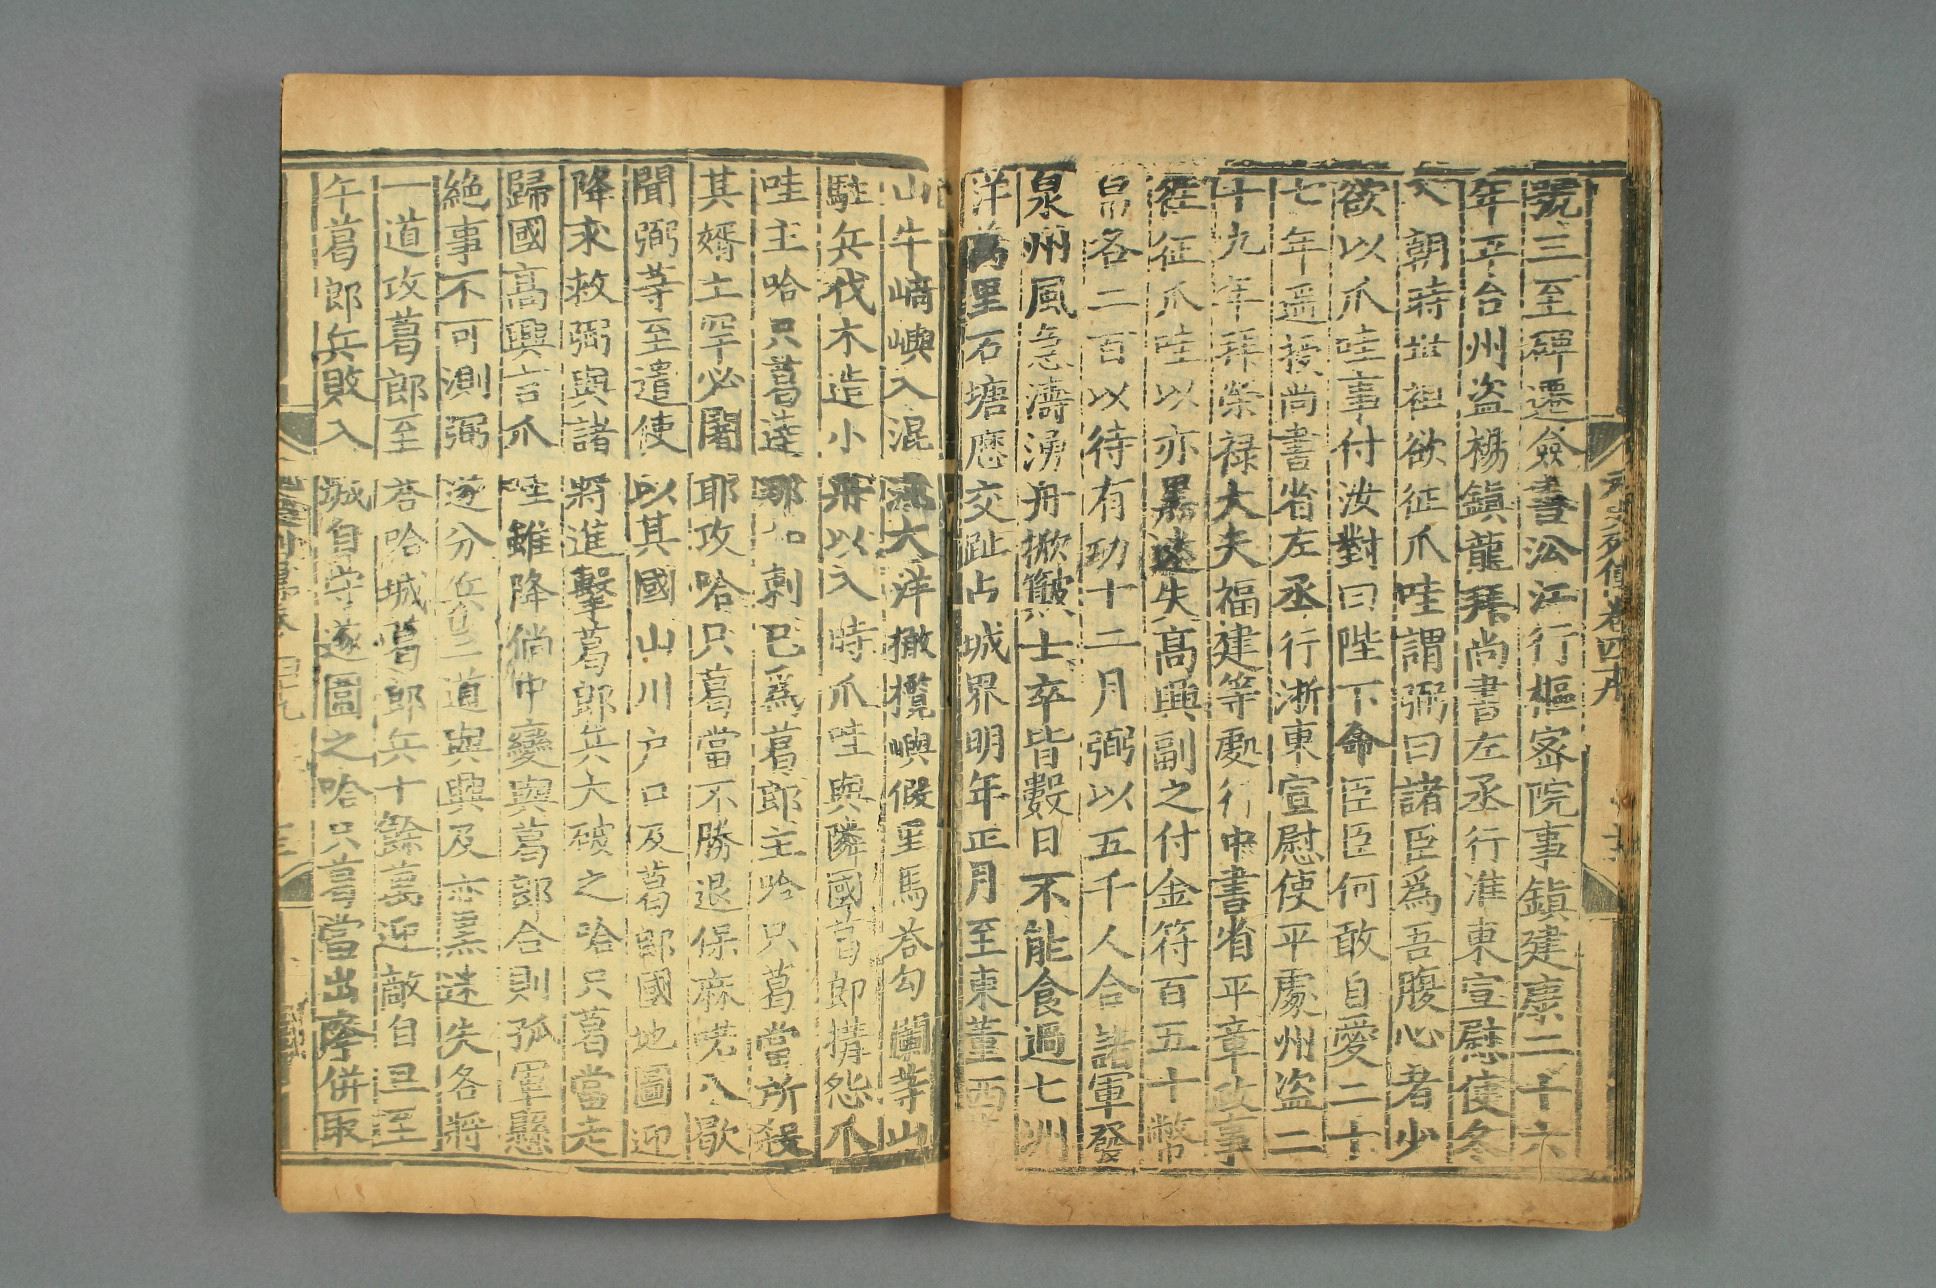 元史列傳卷四十九
號三至繹遷僉書沿江行樞密院事鎮建康二十六
年平台州盜楊鎮龍拜尚書左丞行淮東宣慰使冬
入朝時世祖欲征爪哇謂弼曰諸臣爲吾腹心者少
欲以爪哇事付汝對曰陛下命臣臣何敢自愛二十
七年遥授尚書省左丞行浙東宣慰使平處州盜二
十九年拜榮禄大夫福建等處行中書省平章政事
往征爪哇以亦黑迷失高興副之付金符百五十幣
帛各二百以待有功十二月弼以五千人合諸軍發
泉州風急濤湧舟掀簸士卒皆數日不能食過七洲
洋萬里石塘歷交趾占城界明年正月至東董西
山牛崎嶼入混沌大洋橄欖嶼假里馬荅勾闌等山
駐兵伐木造小舟以入時爪哇與隣國葛郎搆怨爪
哇主哈只葛達那加剌已爲葛郎主哈只葛當所殺
其婿土罕必闍耶攻哈只葛當不勝退保麻喏八歇
聞弼等至遣使以其國山川户口及葛郎國地圖迎
降求救弼與諸將進擊葛郎兵大破之哈只葛當走
歸國高興言爪哇雖降倘中變與葛郎合則孤軍懸
絶事不可測弼遂分兵三道與興及亦黑迷失各將
一道攻葛郎至荅哈城葛郎兵十餘萬迎敵自旦至
午葛郎兵敗入城自守遂圍之哈只葛當出降併取